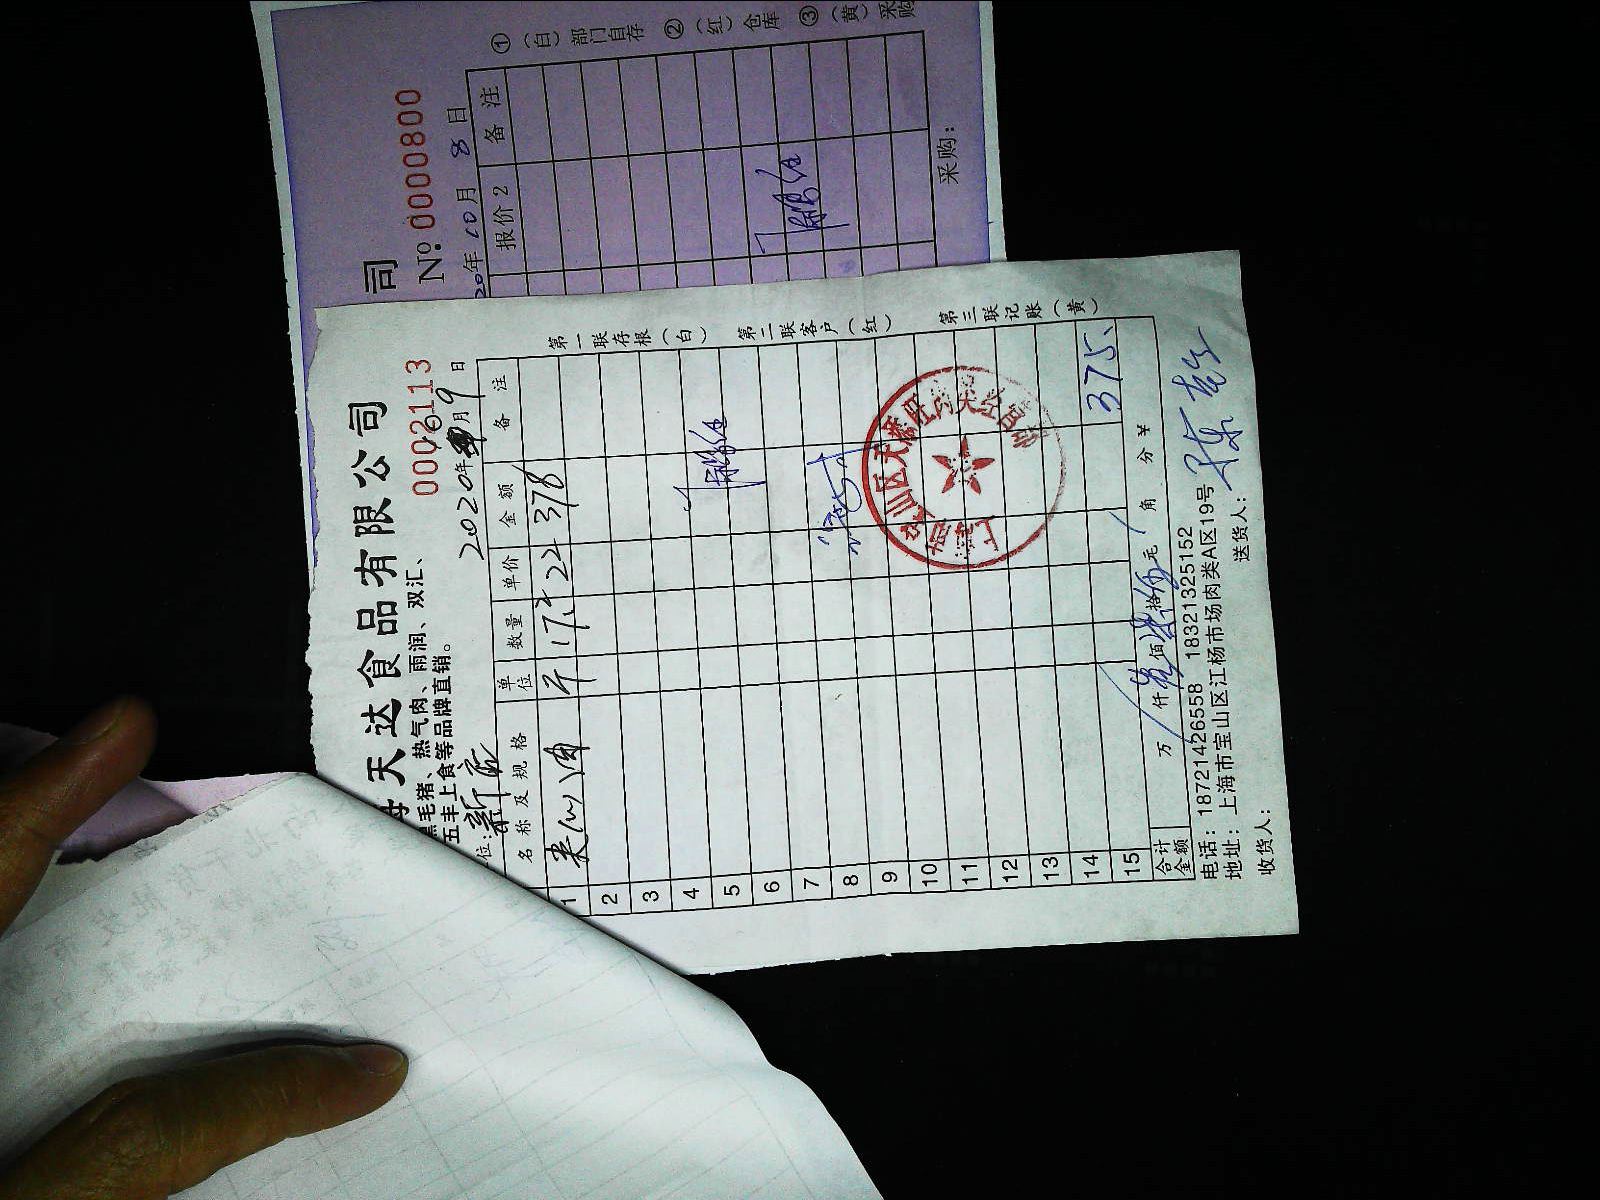 司
№ 0000800
20年10月8日
报价2 备注
采购：
①（白）部门自存 ②（红）仓库 ③（黄）采购
海天达食品有限公司
0002113
黑毛猪、热气肉、雨润、双汇、
五丰上食等品牌直销。
2020年 月9日
名称及规格 单位 数量 单价 金额 备注
1 夹心肉 斤 17.2 22 378
2
3
4
5
6
7
8
9
10
11
12
13
14
15
375.
合计金额 万 仟 佰 拾 元 角 分 ¥
电话：18721426558 18321325152
地址：上海市宝山区江杨市场肉类A区19号
收货人： 送货人：
第一联存根（白） 第二联客户（红） 第三联记账（黄）